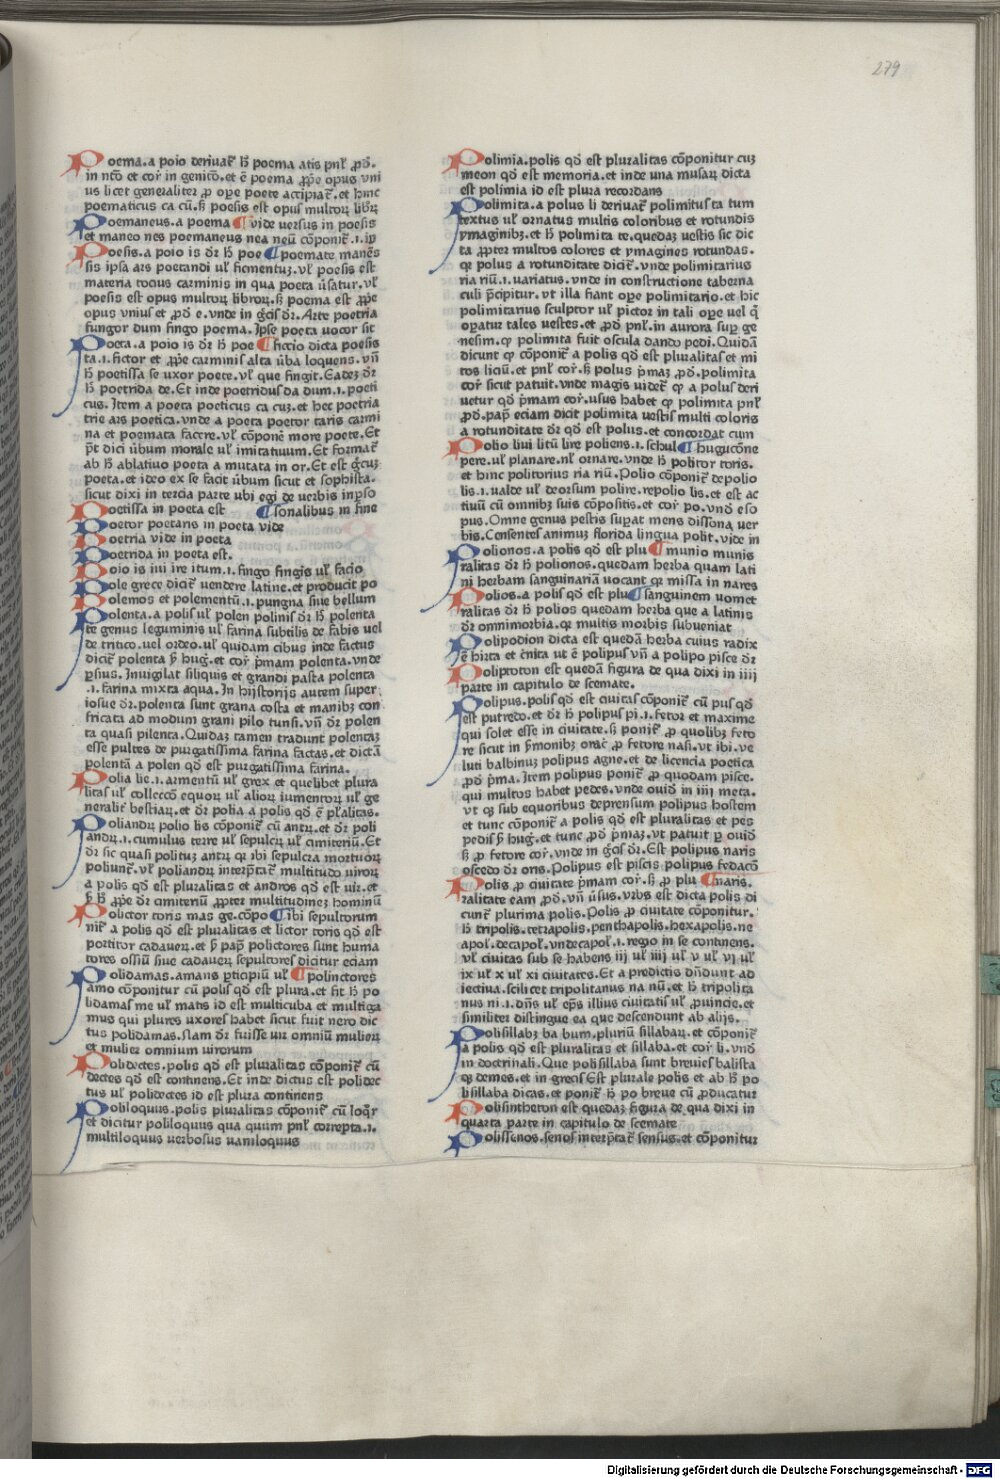 279
Poema.a poio deriuat᷑ hͦ poema atis pnł ꝓd̄.
in ntō et cor᷑ in genitō.et ē poema ꝓpͥe opus vni
us licet generaliter ꝓ oꝑe poete accipiat᷑.et hinc
poematicus ca cū.ſꝫ poeſis eſt opus multoꝝ librꝝ
Poemaneus.a poema ¶ vide uerſus in poeſis
et maneo nes poemaneus nea neū cōponit᷑.i.in
Poeſis.a poio is dꝛ hͦ poe ¶ poemate manēs
ſis ipſa ars poetandi uł figmentuꝫ.vł poeſis eſt
materia totius carminis in qua poeta ūſatur.vł
poeſis eſt opus multoꝝ libroꝝ.ſꝫ poema eſt ꝓpͥe
opus vnius et ꝓd̄ e.vnde in gͨcis dꝛ.Arte poetria
fungor dum fingo poema.Ipſe poeta uocor ſit
Poeta.a poio is dꝛ hͦ poe ¶ fictio dicta poeſis
ta.i.fictor et ꝓpͥe carminis alta ūba loquens.vn̄
hͦ poetiſſa ſe uxor poete.vł que fingit.Eadeꝫ dꝛ
hͦ poetrida de.Et inde poetridus da dum.i.poeti
cus.Item a poeta poeticus ca cuꝫ.et hec poetria
trie ars poetica.vnde a poeta poetor taris carmi
na et poemata facere.vł cōponē more poete.Et
pͭt dici ūbum morale uł imitatiuum.Et format᷑
ab hͦ ablatiuo poeta a mutata in or.Et eſt gͨcuꝫ
poeta.et ideo ex ſe facit ūbum ſicut et ſophiſta.
ſicut dixi in tercia parte ubi egi de uerbis inꝑſo
Poetiſſa in poeta eſt ¶ ſonalibus in fine
Poetor poetaris in poeta vide
Poetria vide in poeta
Poetrida in poeta eſt.
Poio is iui ire itum.i.fingo fingis uł facio
Pole grece dicit᷑ uendere latine.et producit po
Polemos et polementū.i.pungna ſiue bellum
Polenta.a polis uł polen polinis dꝛ hͦ polenta
te genus leguminis uł farina ſubtilis de fabis uel
de tritico.uel ordeo.uł quidam cibus inde factus
dicit᷑ polenta ẜm hug.et cor᷑ pͥmam polenta.vnde
ꝑſius.Inuiglat ſiliquis et grandi paſta polenta
.i.farina mixta aqua.In hijſtorijs autem ſuper
ioſue dꝛ.polenta ſunt grana toſta et manibꝫ con
fricata ad modum grani pilo tunſi.vn̄ dꝛ polen
ta quaſi pilenta.Quidaꝫ tamen tradunt polentaꝫ
eſſe pultes de purgatiſſima farina factas.et dictā
polentā a polen qd̄ eſt purgatiſſima farina.
Polia lie.i.armentū uł grex et quelibet plura
litas uł collectio equoꝝ uł alioꝝ iumentoꝝ uł ge
neralit᷑ beſtiaꝝ.et dꝛ polia a polis qd̄ ē pł'alitas.
Poliandꝝ polio liis cōponit᷑ cū antꝝ.et dꝛ poli
andꝝ.i.cumulus terre uł ſepulcꝝ uł cimiteriū.Et
dꝛ ſic quaſi polituꝫ antꝝ qꝛ ibi ſepulcra mortuoꝝ
poliunt᷑.vł poliandꝝ interp̄tat᷑ multitudo uiroꝝ
a polis qd̄ eſt pluralitas et andros qd̄ eſt uir.et
ẜm hͦ ꝓpͥe dꝛ cimiteriū ꝓpter multitudineꝫ hominū
Polictor toris mas ge.cōpo ¶ ibi ſepultorum
nit᷑ a polis qd̄ eſt pluralitas et lictor toris qd̄ eſt
portitor cadaueꝝ.et ẜm pap̄ polictores ſunt huma
tores oſſiū ſiue cadaueꝝ ſepultores dicitur eciam
Polidamas.amans ꝑticipiū uł ¶ polinctores
amo cōponitur cū polis qd̄ eſt plura.et fit hͦ po
lidamas me uł matis id eſt multicuba et multiga
mus qui plures uxores habet ſicut fuit nero dic
tus polidamas.Nam dꝛ fuiſſe uir omniū mulieꝝ
et mulier omnium uirorum
Polidectes.polis qd̄ eſt pluralitas cōponit᷑ cū
dectes qd̄ eſt continens.Et inde dictus eſt polidec
tus uł polidectes id eſt plura continens
Poliloquus.polis pluralitas cōponit᷑ cū loqͦr
et dicitur poliloquus qua quum pnł correpta.i.
multiloquus uerboſus uaniloquus
Polimia.polis qd̄ eſt pluralitas cōponitur cuꝫ
meon qd̄ eſt memoria.et inde una muſaꝝ dicta
eſt polimia id eſt plura recordans
Polimita.a polus li deriuat᷑ polimitus ta tum
textus uł ornatus multis coloribus et rotundis
ymaginibꝫ.et hͦ polimita te.quedaꝫ ueſtis ſic dic
ta ꝓpter multos colores et ymagines rotundas.
qꝛ polus a rotunditate dicit᷑.vnde polimitarius
ria riū.i.uariatus.vnde in conſtructione taberna
culi p̄cipitur.vt illa fiant oꝑe polimitario.et hic
polimitarius ſculptor uł pictor in tali oꝑe uel qͥ
oꝑatur tales ueſtes.et ꝓd̄ pnł.in aurora ſuꝑ ge
neſim.Ꝙ polimita fuit oſcula dando pedi.Quidā
dicunt ꝙ cōponit᷑ a polis qd̄ eſt pluralitas et mi
tos liciū.et pnł cor᷑.ſꝫ polus pͥmaꝫ ꝓd̄.polimita
cor᷑ ſicut patuit.vnde magis uidet᷑ ꝙ a polus deri
uetur qd̄ pͥmam cor᷑.uſus habet ꝙ polimita pnł
ꝓd̄.pap̄ eciam dicit polimita ueſtis multi coloris
a rotunditate dꝛ qd̄ eſt polus.et concordat cum
Polio liui litū lire poliens.i.ſchul ¶ hugucōne
pere.uł planare.uł ornare.vnde hͦ politor toris.
et hinc politorius ria riū.Polio cōponit᷑ depolio
lis.i.ualde uł deorſum polire.repolio lis.et eſt ac
tiuū cū omnibꝫ ſuis cōpoſitis.et cor᷑ po.vnd̄ eſo
pus.Omne genus peſtis ſuꝑat mens diſſona uer
bis.Conſentes animus florida lingua polit.vide in
Polionos.a polis qd̄ eſt plu ¶ munio munis
ralitas dꝛ hͦ polionos.quedam herba quam lati
ni herbam ſanguinariā uocant qꝛ miſſa in nares
Polios.a polis qd̄ eſt plu ¶ ſanguinem uomet
ralitas dꝛ hͦ polios quedam herba que a latinis
dꝛ omnimorbia.qꝛ multis morbis ſubueniat
Polipodion dicta eſt quedā herba cuius radix
ē hirta et c̄nita ut ē polipus vn̄ a polipo piſce dꝛ
Poliproton eſt quedā figura de qua dixi in iiij
parte in capitulo de ſcemate.
Polipus.polis qd̄ eſt ciuitas cōponit᷑ cū pus qd̄
eſt putredo.et dꝛ hͦ polipus pi.i.fetor et maxime
qui ſolet eſſe in ciuitate.ſꝫ ponit᷑ ꝓ quolibꝫ feto
re ſicut in ẜmonibꝫ orac᷑ ꝓ fetore naſi.vt ibi.ve
luti balbinuꝫ polipus agne.et de licencia poetica
ꝓd̄ pͥma.Item polipus ponit᷑ ꝓ quodam piſce.
qui multos habet pedes.vnde ouid̄ in iiij meta.
vt qꝫ ſub equoribus deprenſum polipus hoſtem
et tunc cōponit᷑ a polis qd̄ eſt pluralitas et pes
pedis ẜm hug.et tunc ꝓd̄ pͥmaꝫ.vt patuit ꝑ ouid̄
ſꝫ ꝓ fetore cor᷑.vnde in gͨciſ dꝛ.Eſt polipus naris
oſcedo dꝛ oris.Polipus eſt piſcis polipus fedacō
Polis ꝓ ciuitate pͥmam cor᷑.ſꝫ ꝓ plu ¶ naris.
ralitate eam ꝓd̄.vn̄ ūſus.vrbs eſt dicta polis di
cunt᷑ plurima polis.Polis ꝓ ciuitate cōponitur.
hͦ tripolis.tetrapolis.penthapolis.hexapolis.ne
apoł.decapoł.vndecapoł.i.regio in ſe continens.
vł ciuitas ſub ſe habens iij uł iiij uł v uł vj uł
ix uł x uł xi ciuitates.Et a predictis dn̄dunt ad
iectiua.ſcilicet tripolitanus na nū.et hͦ tripolita
nus ni.i.dn̄s uł ep̄s illius ciuitatis uł ꝓuincie.et
ſimiliter diſtingue ea que deſcendunt ab alijs.
Poliſillabꝫ ba bum.pluriū ſillabaꝝ.et cōponit᷑
a polis qd̄ eſt pluralitas et ſillaba.et cor᷑ li.vnd̄
in doctrinali.Que poliſillaba ſunt breuies baliſta
qꝫ demes.et in grecis Eſt plurale polis et ab hͦ po
liſillaba dicas.et ponit᷑ hͦ po breue cū ꝓducatur
Poliſintheton eſt quedaꝫ figura de qua dixi in
quarta parte in capitulo de ſcemate
Poliſſenos.ſenos interp̄tat᷑ ſenſus.et cōponitur
Digitalisierung gefördert durch die Deutsche Forschungsgemeinschaft - DFG